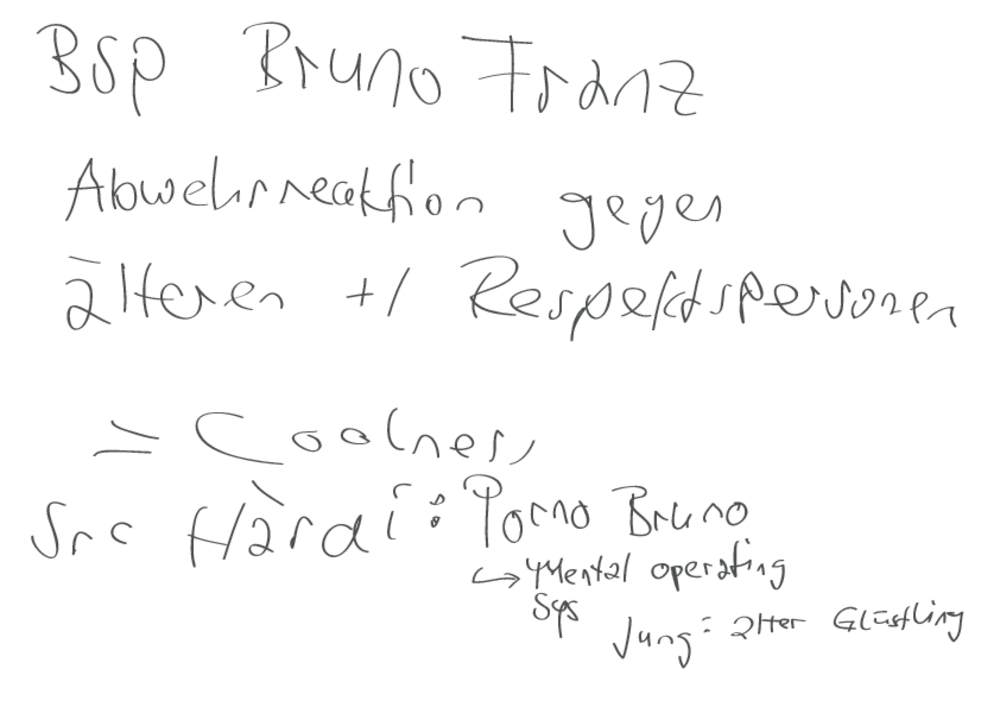 Bsp Bruno Franz
Abwehrreaktion gegen
älteren +/ Respektspersonen
= Coolness
Src Härdi: Porno Bruno
↪ Mental operating
Sys
Jung: älter Glüstling